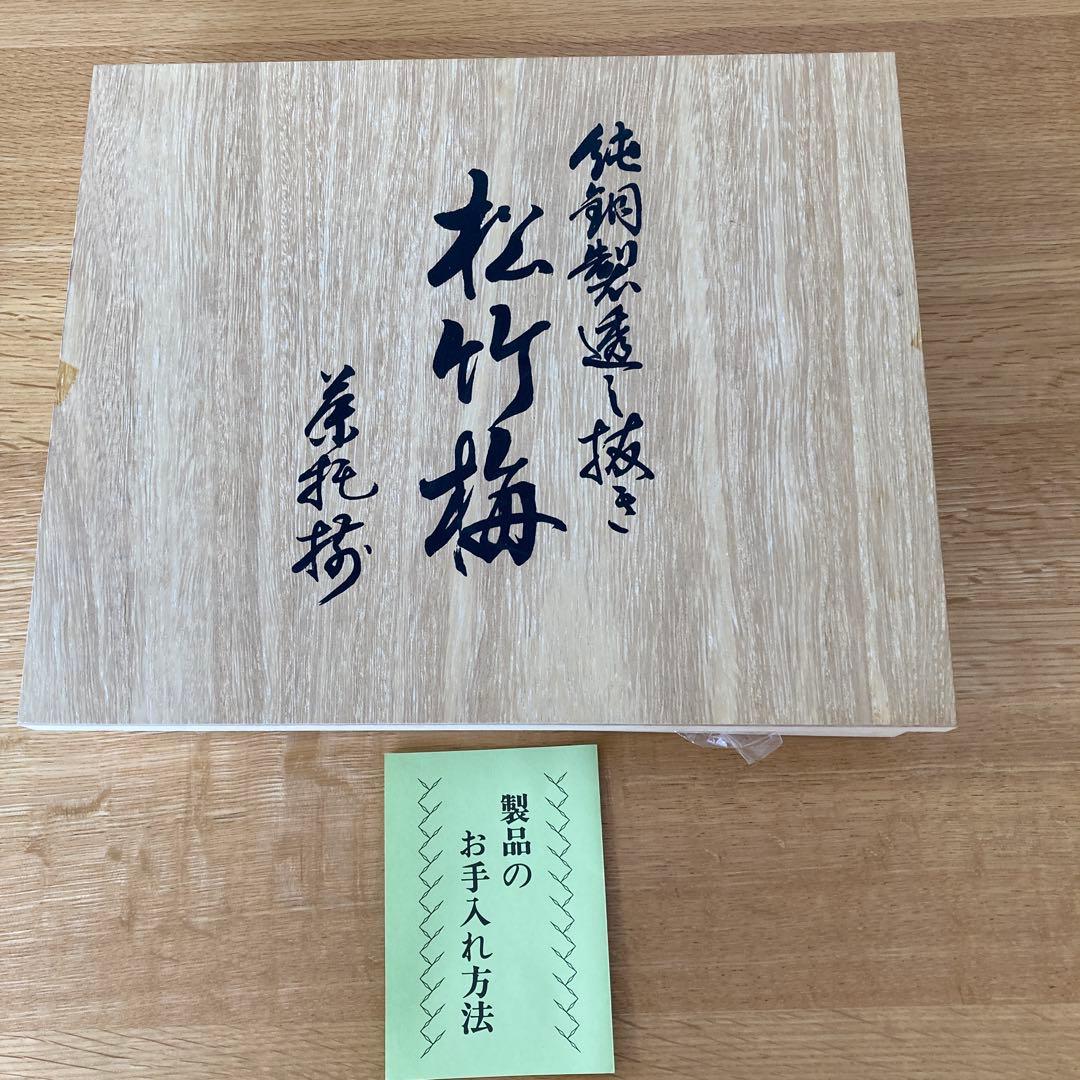 純銅製透し抜き
松竹梅
茶托揃
製品の
お手入れ方法